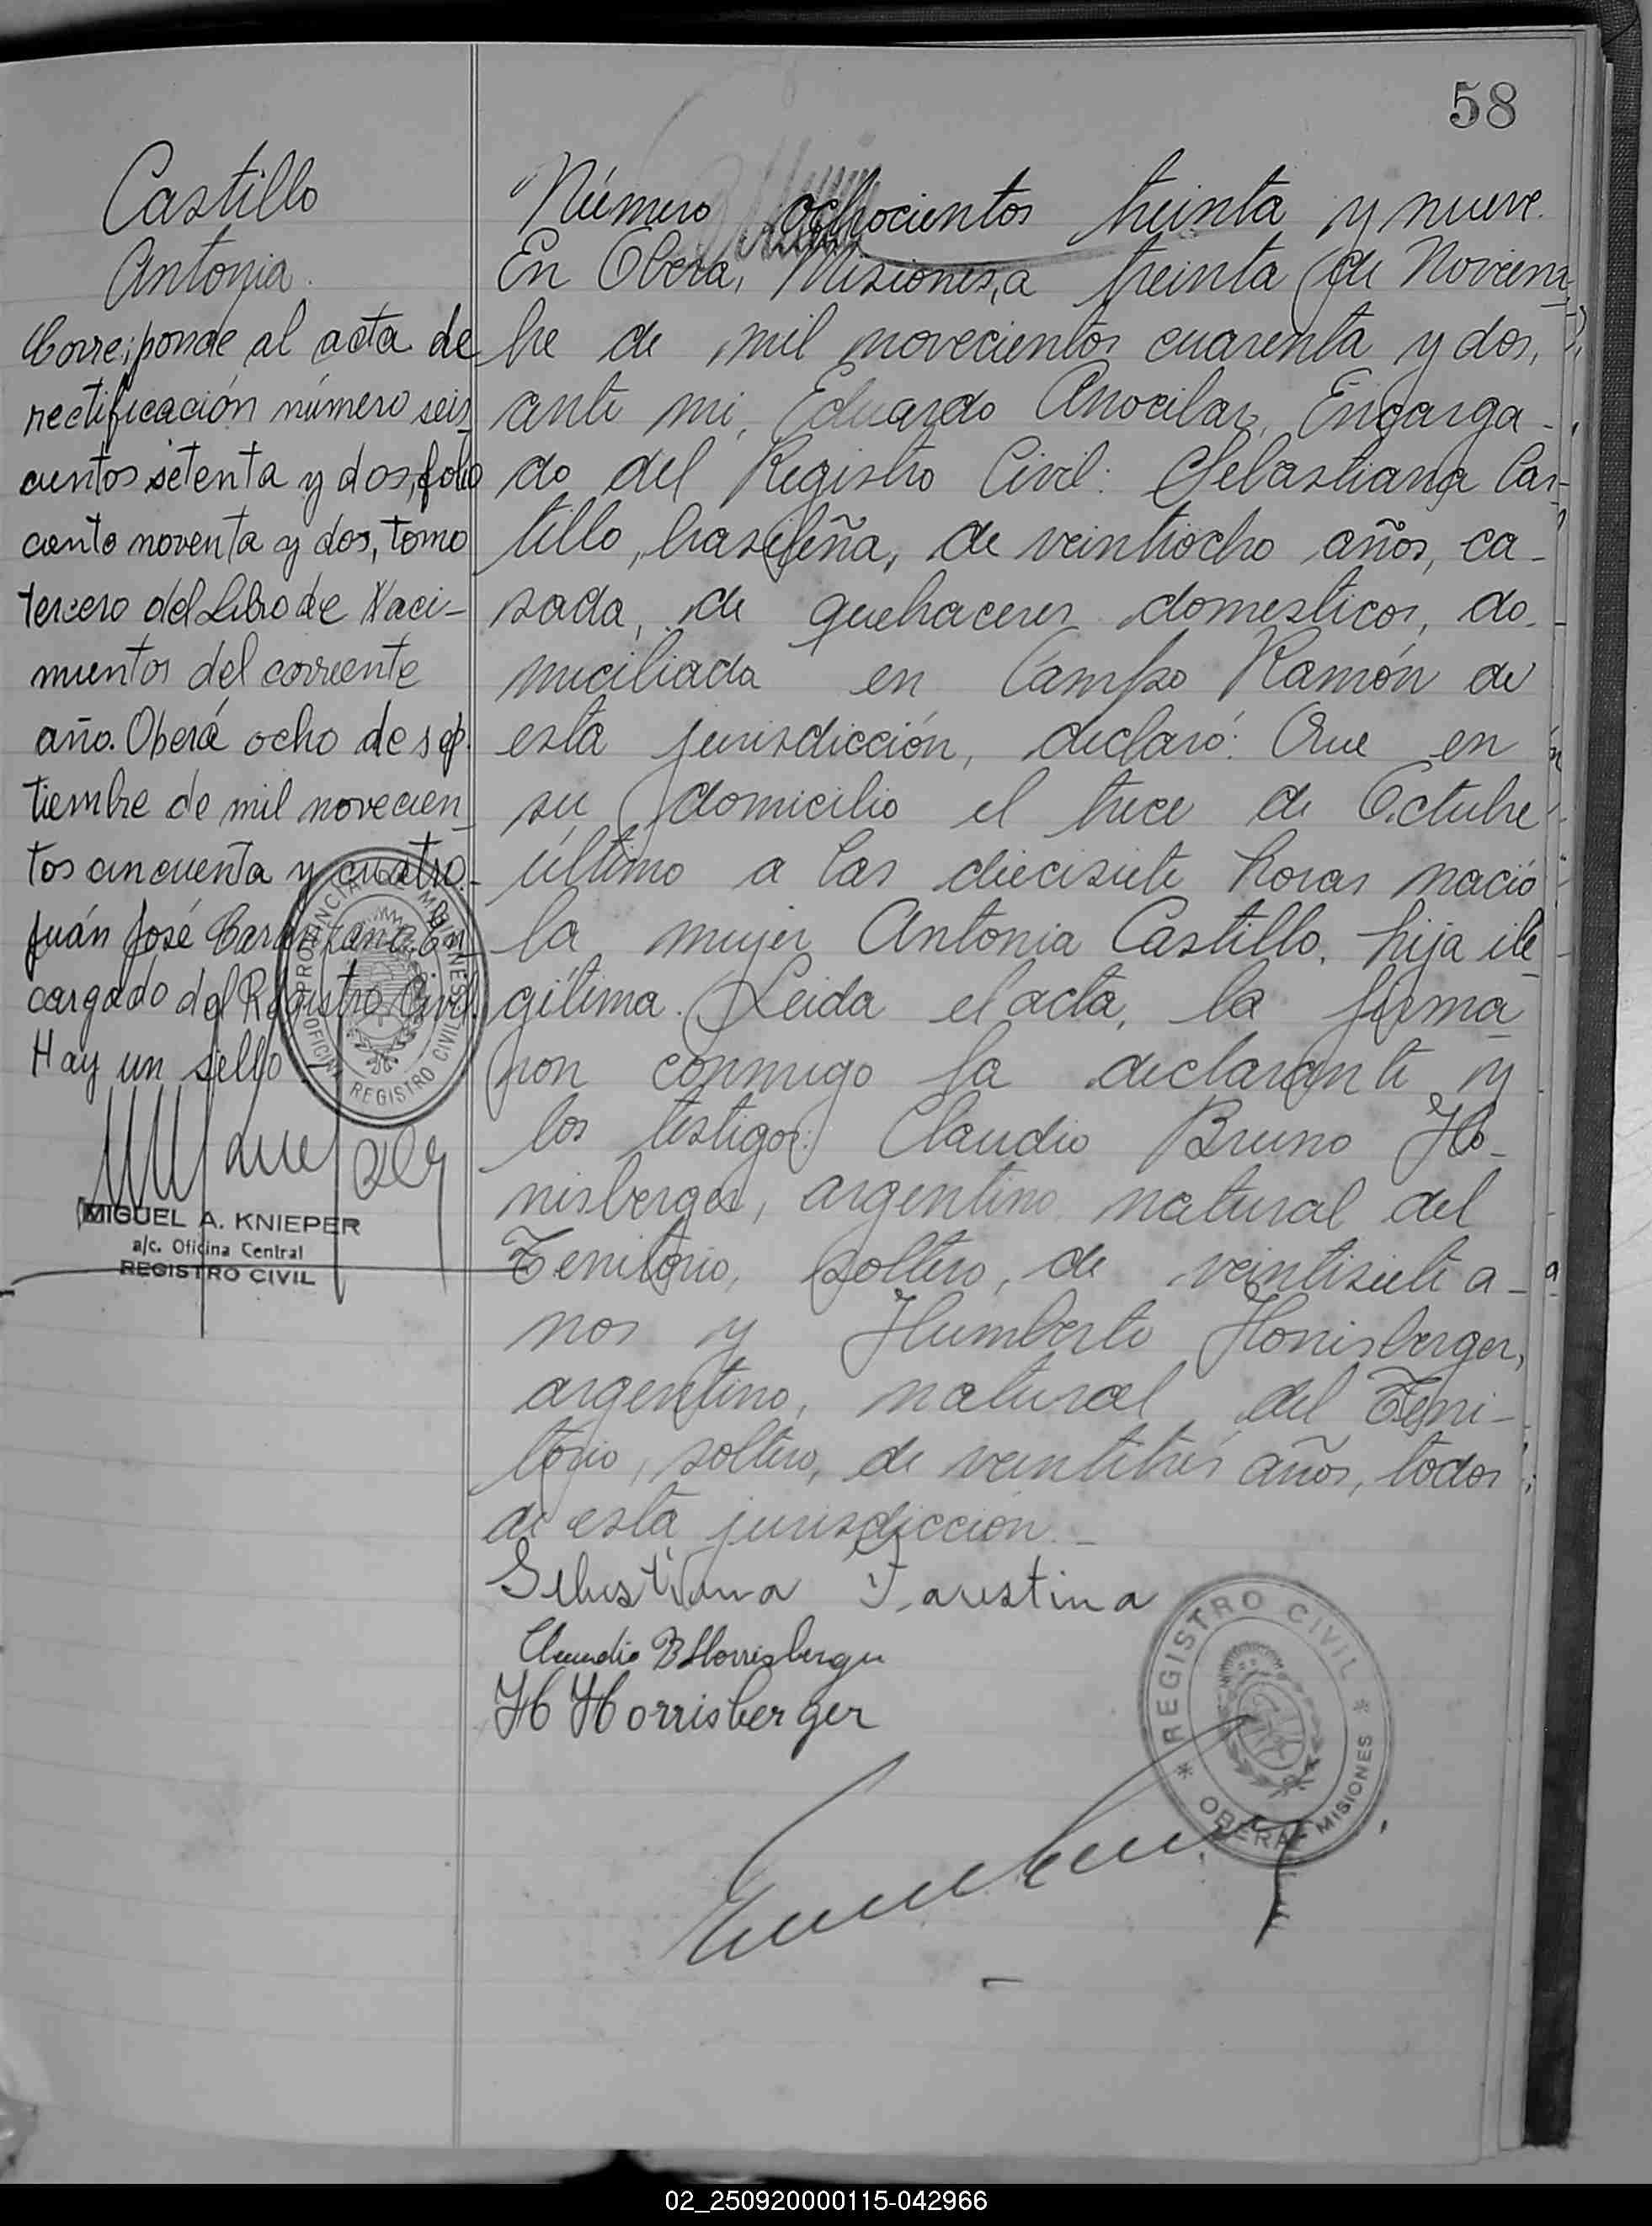 58
Castillo
Antonia.
Corresponde al acta de
rectificación número seis_
cientos setenta y dos, folio
ciento noventa y dos, tomo
tercero del Libro de Naci-
mientos del corriente
año. Oberá ocho de sep.
tiembre de mil novecien_
tos cincuenta y cuatro._
Juán José En_
cargado del Registro Civil.
Hay un sello
PROVINCIA DE MISIONES
OFICINA REGISTRO CIVIL
MIGUEL A. KNIEPER
a/c. Oficina Central
REGISTRO CIVIL
Número ochocientos treinta y nueve.
En Oberá, Misiones, a treinta de Noviem_
bre de mil novecientos cuarenta y dos,
ante mi, Eduardo Encarga_
do del Registro Civil: Sebastiana Cas-
tillo, brasileña, de veintiocho años, ca_
sada, de quehaceres domesticos, do_
miciliada en Campo Ramón de
esta jurisdicción, declaró: Que en
su domicilio el trece de Octubre
último a las diecisiete horas nació
la mujer Antonia Castillo, hija ile_
gítima. Leida el acta, la firma_
ron conmigo la declarante y
los testigos: Claudio Bruno Ho_
nisberger, argentino natural del
Territorio, soltero, de veintisiete a_
ños y Humberto Honisberger,
argentino, natural del Terri_
torio, soltero, de veintitrés años, todos
de esta jurisdicción._
Sebastiana Faustina
Claudio B Horrisberger
H Horrisberger
REGISTRO CIVIL
OBERA - MISIONES
02_250920000115-042966